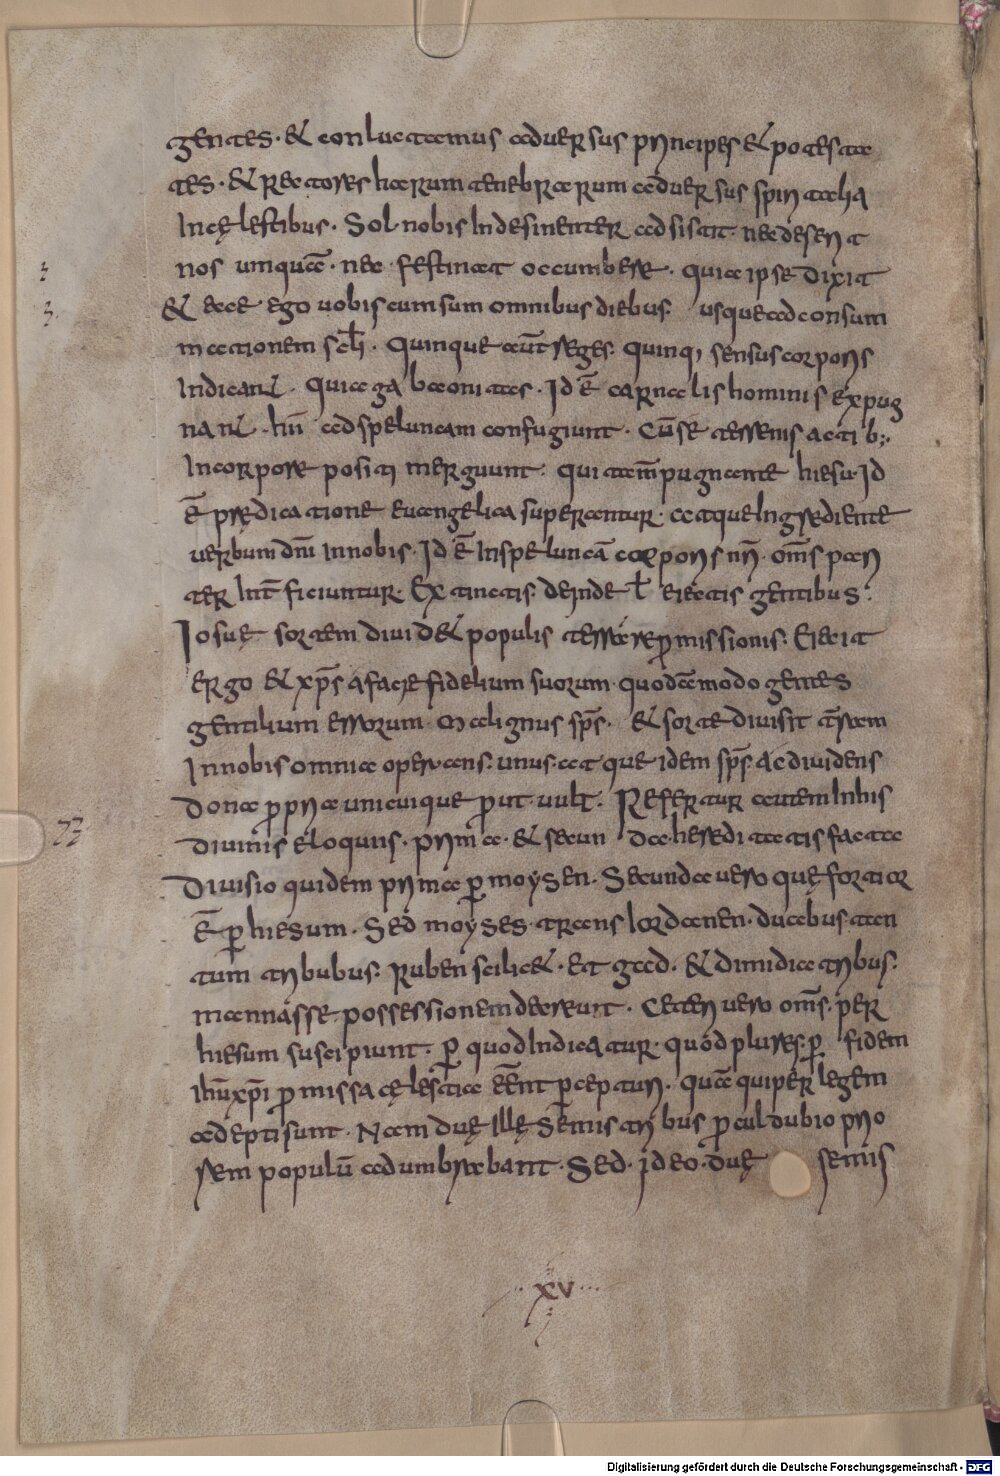 gentes · & conluctamus aduersus principes & potesta
tes · & rectores harum tenebrarum aduersus spiritalia
In cęlestibus · Sol nobis Indesinenter adsistit · nec deserit
nos umquā · nec festinat occumbere · quia ipse dixit
& ecce ego uobiscum sum omnibus diebus · usque ad consum
mationem scłi · Quinque aūt reges · quinq; sensus corporis
Indican& · quia gabaonites · Id ē carnalis hominis expug
nan& · hii ad speluncam confugiunt · Cū se terrenis actib;
In corpore positi merguunt · qui tam̄ pugnante hiesu Id
ē prędicatione euangelica superantur · atque Ingrediente
uerbum dn̄i In nobis · Id ē In speluncā corporis nr̄i · om̄s pari
ter Int̄ficiuntur · Extinctis deinde ł eiectis gentibus ·
Iosuę sortem diuid& populis terrā repmissionis · Eiecit
ergo & xp̄s a facie fidelium suorum · quodā modo gentes
gentilium errorum · Malignus sp̄s · & sorte diuisit t̄ram
In nobis omnia operans · unus atque idem sp̄s ac diuidens
dona ppria unicuique put uult · Refertur autem In his
diuinis eloquiis · prima · & secunda hereditatis facta
Diuisio quidem prima p moysen · Secunda uero quę fortior
ē p hiesum · Sed moyses · trans Iordanen · ducebus tan
tum tribubus · Ruben scilic& · et gad · & dimidia tribus ·
mannasse possessionem decreuit · Ceteri uero om̄s per
hiesum suscipiunt · p quod Indicatur · quod plures p fidem
ihū xp̄i pmissa cęlestia ēēnt pcepturi · quā qui per legem
adepti sunt · Nam duę Illę semis tribus p cul dubio prio
rem populū adumbrabant · Sed · ideo · duę semis
xv
73
Digitalisierung gefördert durch die Deutsche Forschungsgemeinschaft - DFG